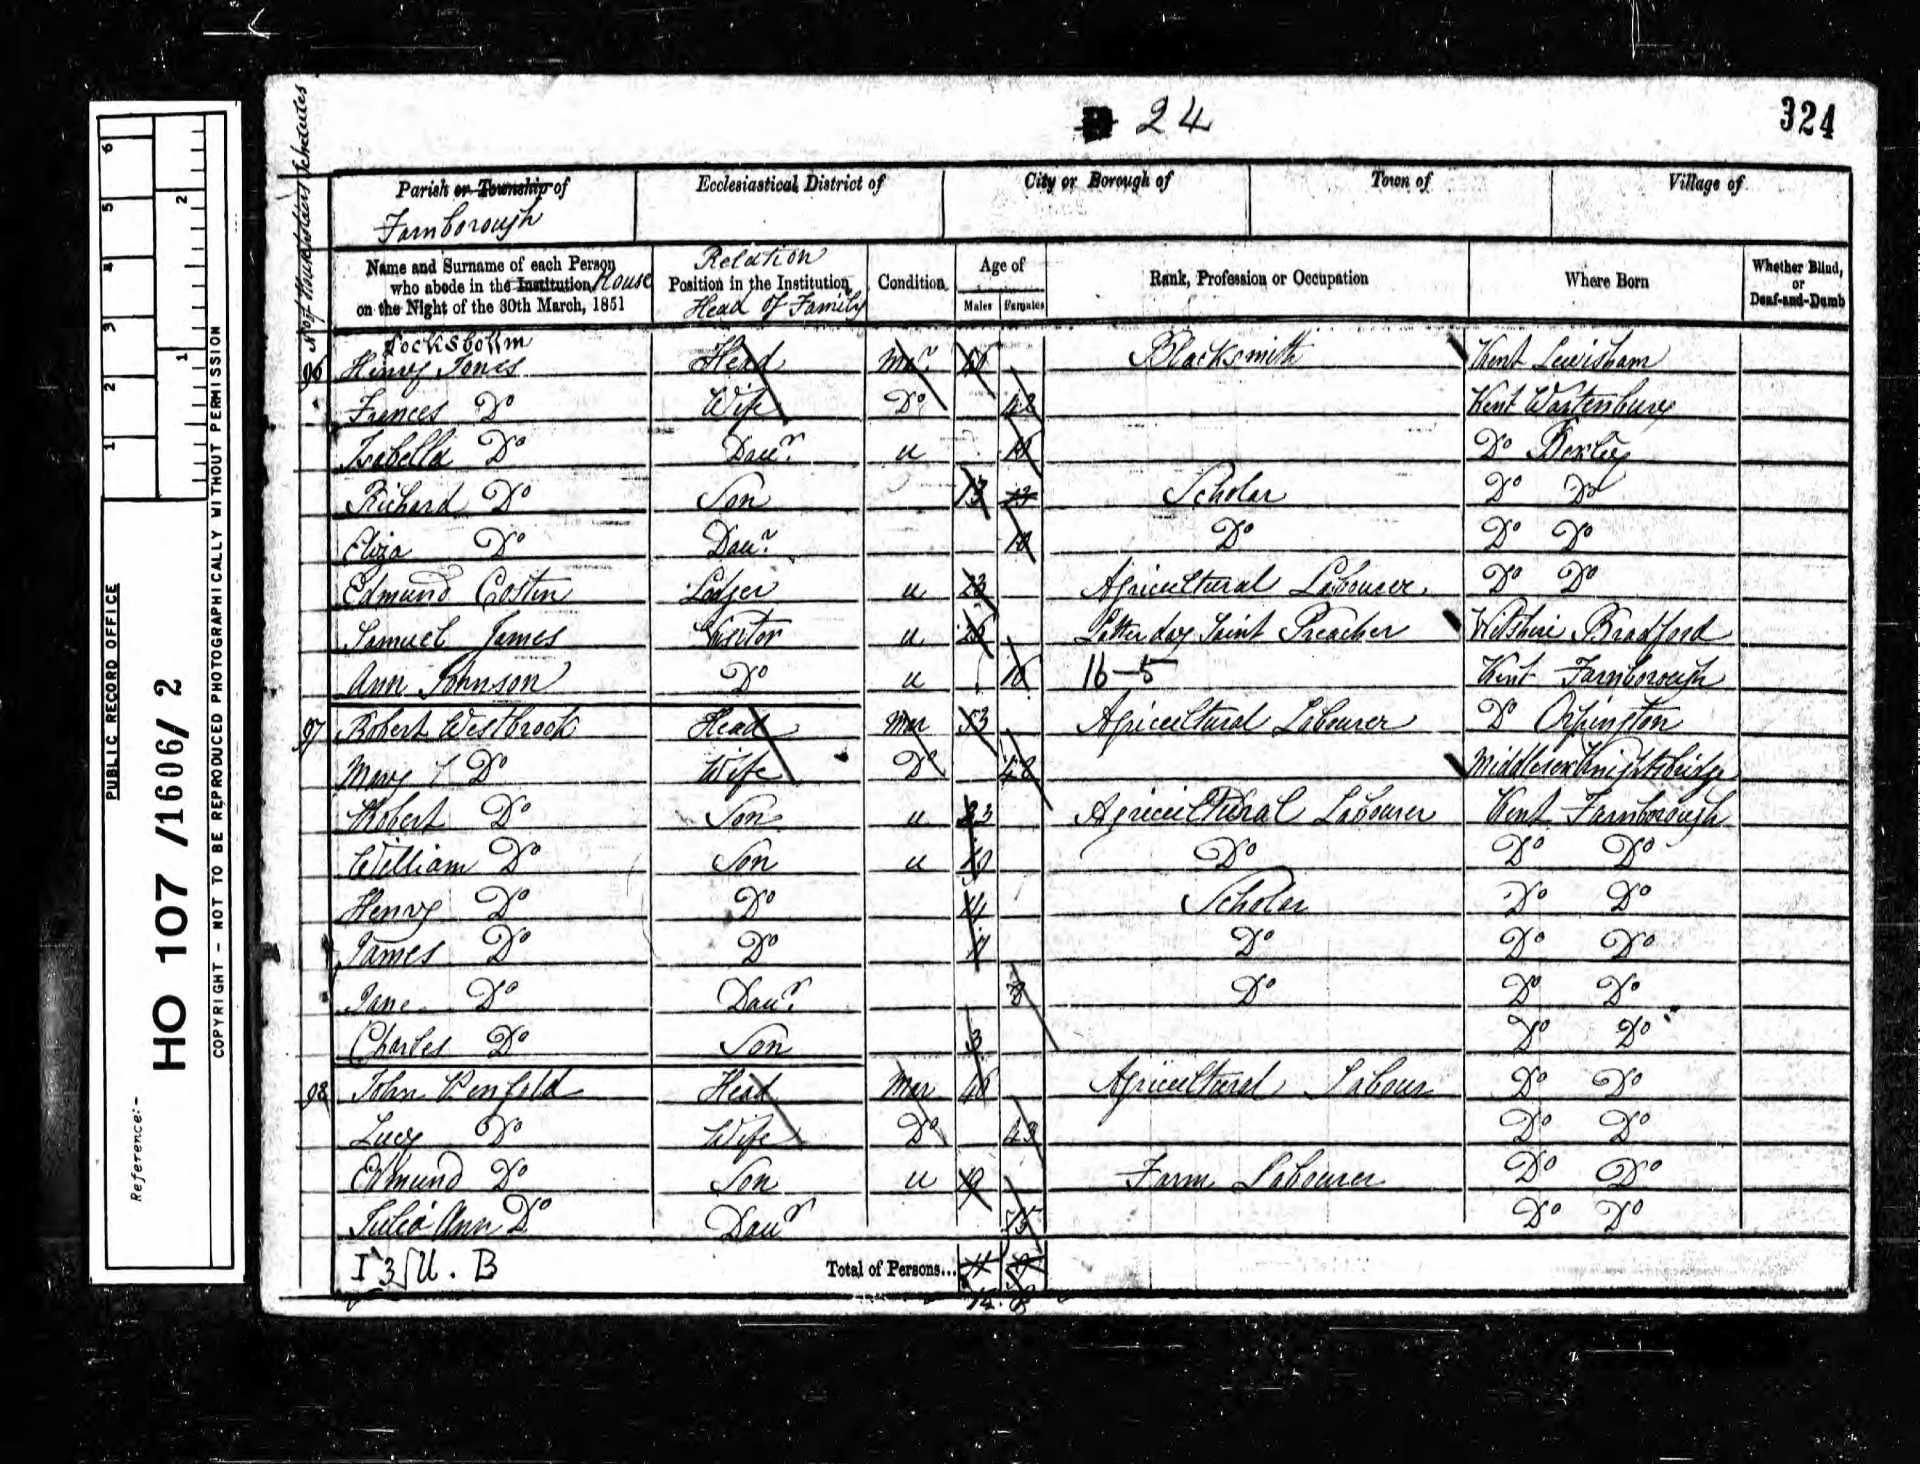 24
324
No of Householders Schedules
Parish or Township of
Farnborough
Ecclesiastical District of
City or Borough of
Town of
Village of
Name and Surname of each Person
who abode in the Institution House
on the Night of the 30th March, 1851
Relation
Position in the Institution
Head of Family
Condition
Age of
Males Females
Rank, Profession or Occupation
Where Born
Whether Blind,
or
Deaf-and-Dumb
Locksbottm
96 Henry Jones Head Mar Blacksmith Kent Lewisham
Frances Do Wife Do 42 Kent
Isabella Do Daur u Do Bexley
Richard Do Son 13 Scholar Do Do
Eliza Do Daur 10 Do Do Do
Edmund Costin Lodger u 23 Agricultural Labourer Do Do
Samuel James Visitor u 26 Latter day Saint Preacher Wiltshire Bradford
Ann Johnson Do u 16 16-5 Kent Farnborough
97 Robert Westbrook Head Mar 53 Agricultural Labourer Do Orpington
Mary Do Wife Do 48 Middlesex Knightsbridge
Robert Do Son u 23 Agricultural Labourer Kent Farnborough
William Do Son u Do Do Do
Henry Do Do 14 Scholar Do Do
James Do Do 11 Do Do Do
Jane Do Daur 8 Do Do Do
Charles Do Son 3 Do Do
98 John Penfold Head Mar 46 Agricultural Labour Do Do
Lucy Do Wife Do 43 Do Do
Edmund Do Son u 19 Farm Labourer Do Do
Julia Ann Do Daur 15 Do Do
I 3 U. B Total of Persons...
12. 8
PUBLIC RECORD OFFICE
Reference:-
HO 107 /1606/ 2
COPYRIGHT - NOT TO BE REPRODUCED PHOTOGRAPHICALLY WITHOUT PERMISSION
1 2 3 4 5 6
1 2